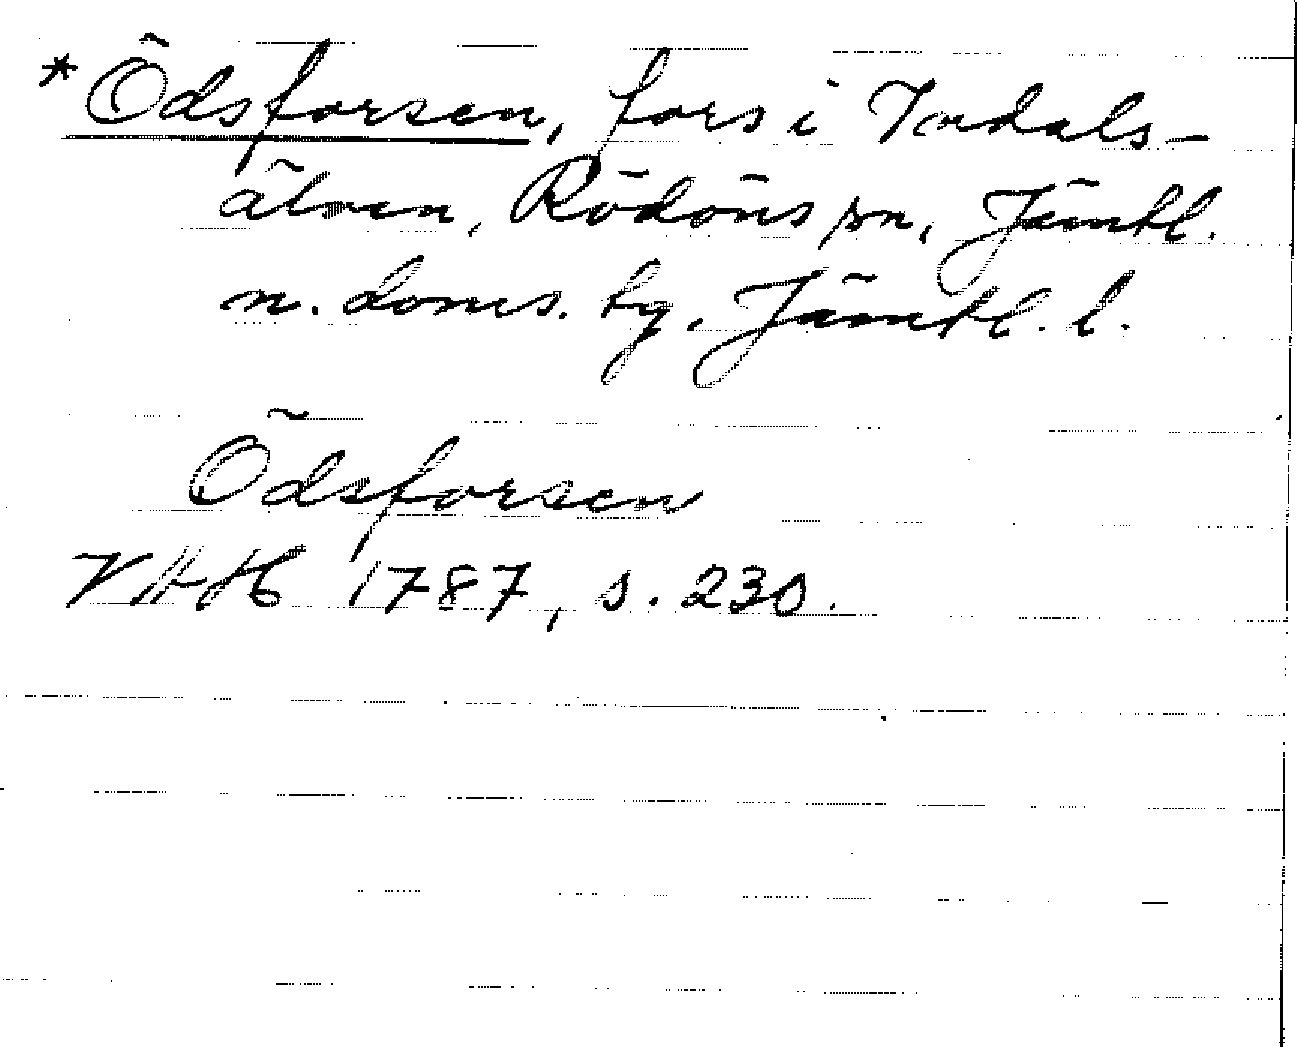 *Ödsforsen, fors i Indals-
älven, Rödöns sn, Jämtl.
n. doms. tg. Jämtl. l.
Ödsforsen
VHAH 1787, s. 230.